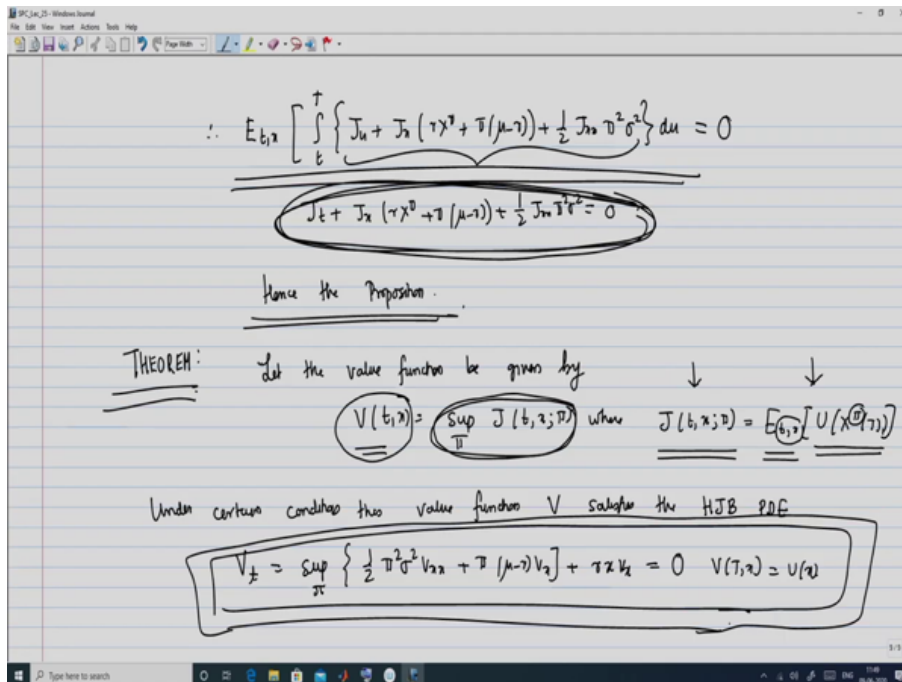 SPC_Lec_25 - Windows Journal
File Edit View Insert Actions Tools Help
Page Width
∴ E_{t,x} [ ∫_t^T { J_u + J_x ( rX^π + π(μ-r) ) + 1/2 J_{xx} π²σ² } du = 0
J_t + J_x ( rX^π + π(μ-r) ) + 1/2 J_{xx} π²σ² = 0
Hence the Proposition.
THEOREM: Let the value function be given by
V(t,x) = sup_π J(t,x;π) where J(t,x;π) = E_{t,x} [ U(X^π(T)) ]
Under certain conditions this value function V satisfies the HJB PDE
V_t = sup_π { 1/2 π²σ² V_{xx} + π(μ-r)V_x ] + rxV_x = 0 V(T,x) = U(x)
5/5
Type here to search
11:49
ENG